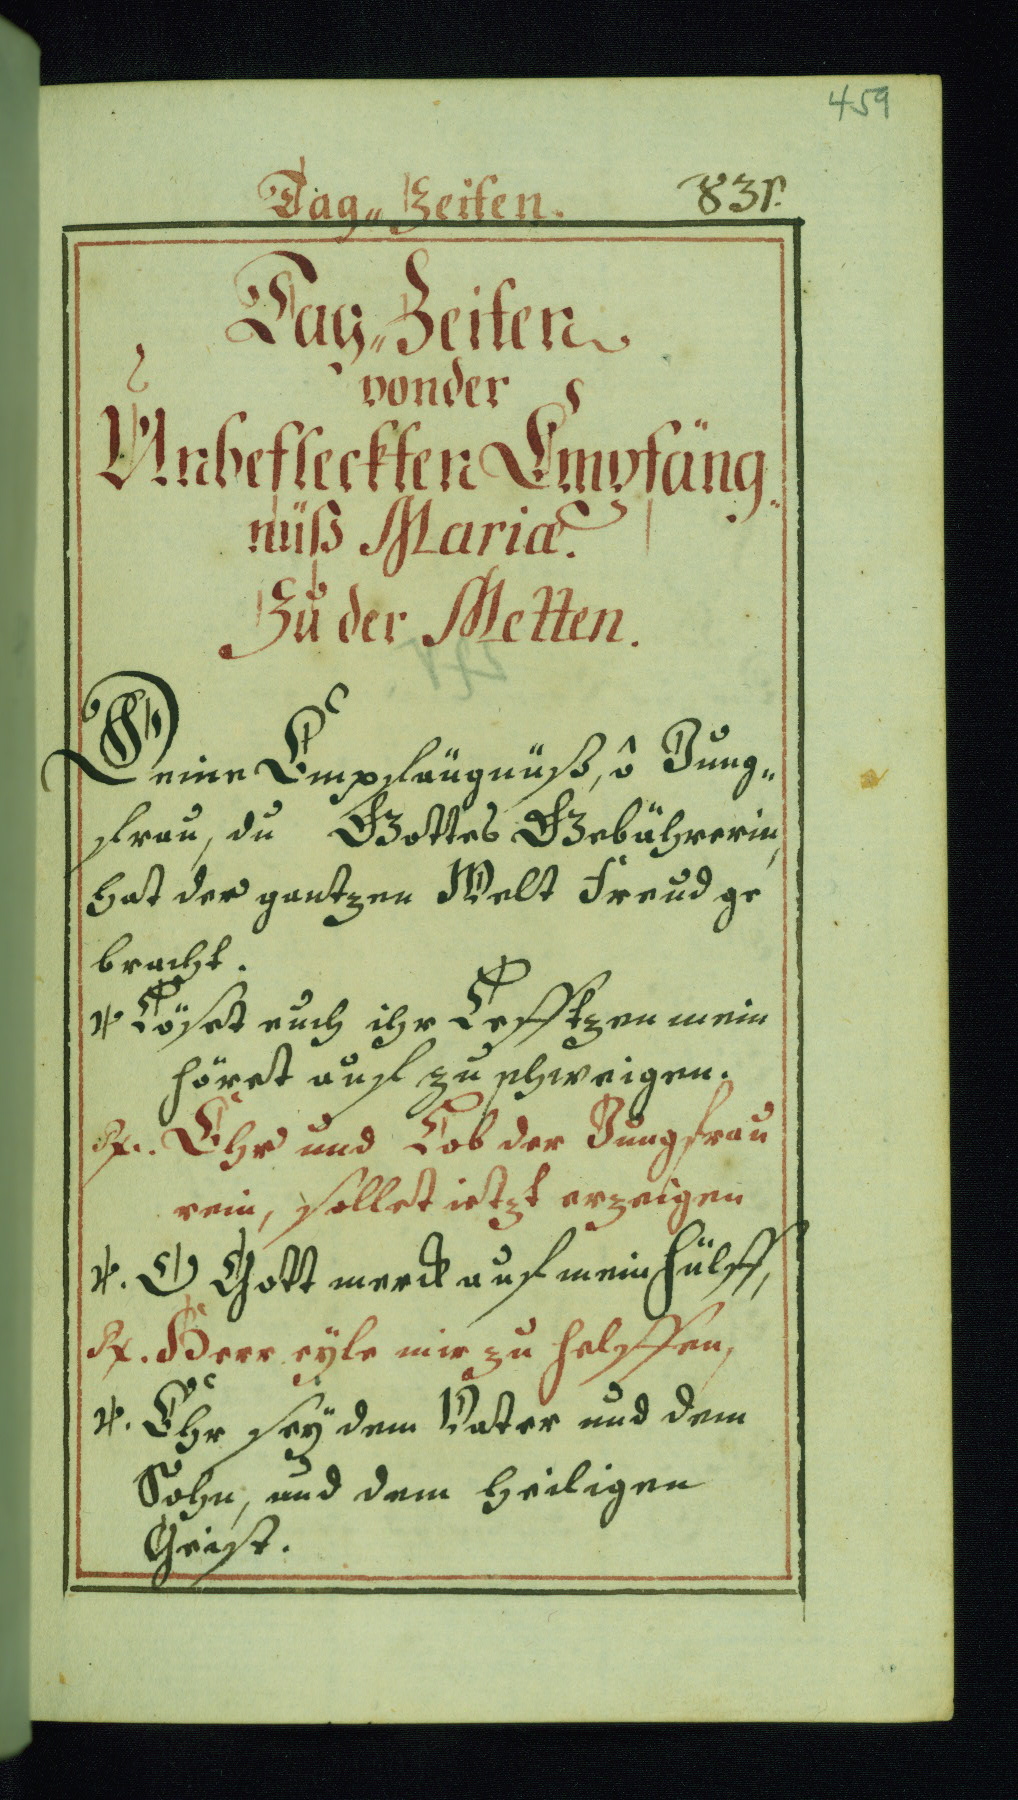 459
Tag„ Zeiten. 831.
Tag„ Zeiten
von der
Unbefleckten Empfäng„
nüß Mariæ.
Zu der Metten.
Deine Empfängnüß, ô Jung„
frau, du Gottes Gebährerin,
hat der gantzen Welt Freud ge
bracht.
℣ Löset euch ihr Lefftzen mein
höret auf zu schweigen.
℟. Ehr und Lob der Jungfrau
rein, sollet ietzt erzeigen
℣. O Gott merck auf mein hülff,
℟. Herr eyle mir zu helffen,
℣. Ehr seÿ dem Vater und dem
Sohn, und dem heiligen
Geist.